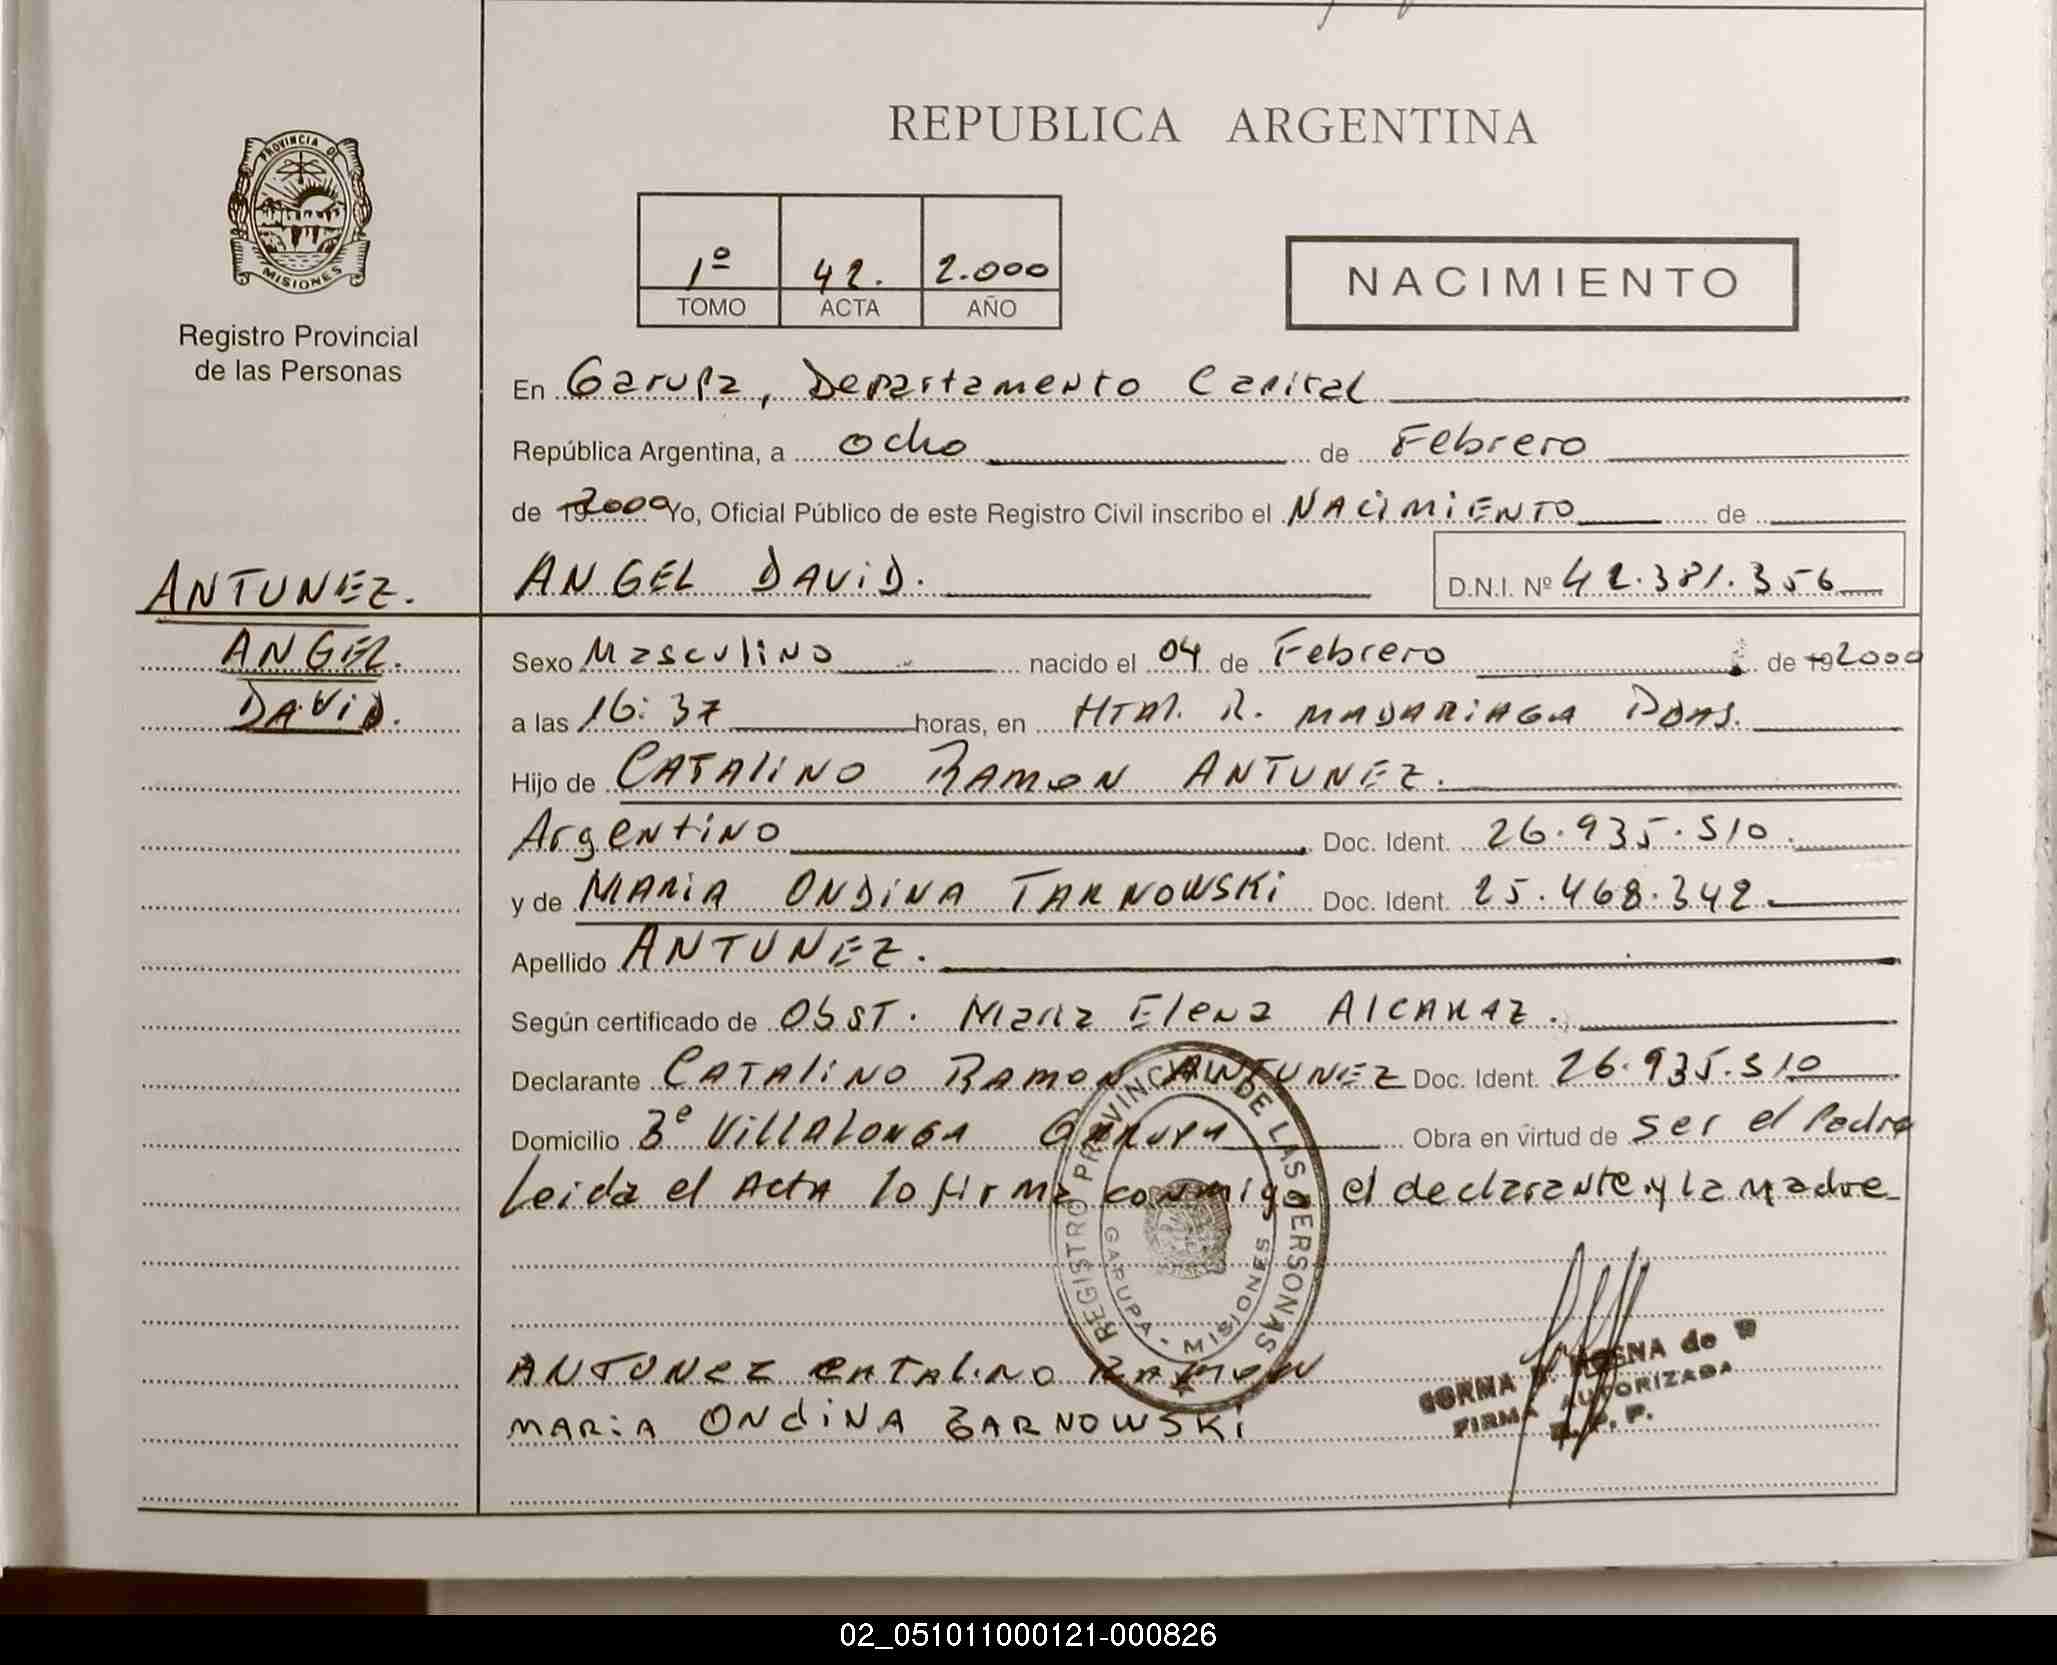 REPUBLICA ARGENTINA
PROVINCIA DE
MISIONES
Registro Provincial
de las Personas
1º 42. 2.000
TOMO ACTA AÑO
NACIMIENTO
En Garupa, Departamento Capital
República Argentina, a ocho de Febrero
de 2000 Yo, Oficial Público de este Registro Civil inscribo el NACIMIENTO de
ANTUNEZ.
ANGEL
DAVID.
ANGEL DAVID. D.N.I. Nº 42.381.356
Sexo Masculino nacido el 04 de Febrero de 19 2000
a las 16:37 horas, en Htal. R. MADARIAGA Pdas.
Hijo de CATALINO RAMON ANTUNEZ.
Argentino Doc. Ident. 26.935.510.
y de MARIA ONDINA TARNOWSKI Doc. Ident. 25.468.342
Apellido ANTUNEZ.
Según certificado de Obst. Maria Elena ALCARAZ.
Declarante CATALINO RAMON ANTUNEZ Doc. Ident. 26.935.510
Domicilio Bº VILLALONGA GARUPA Obra en virtud de ser el Padre
Leida el Acta lo firma conmigo el declarante y la madre
REGISTRO PROVINCIAL DE LAS PERSONAS
GARUPA - MISIONES
ANTUNEZ CATALINO RAMON
MARIA ONDINA TARNOWSKI
NORMA
FIRMA AUTORIZADA
R. P. P.
02_051011000121-000826